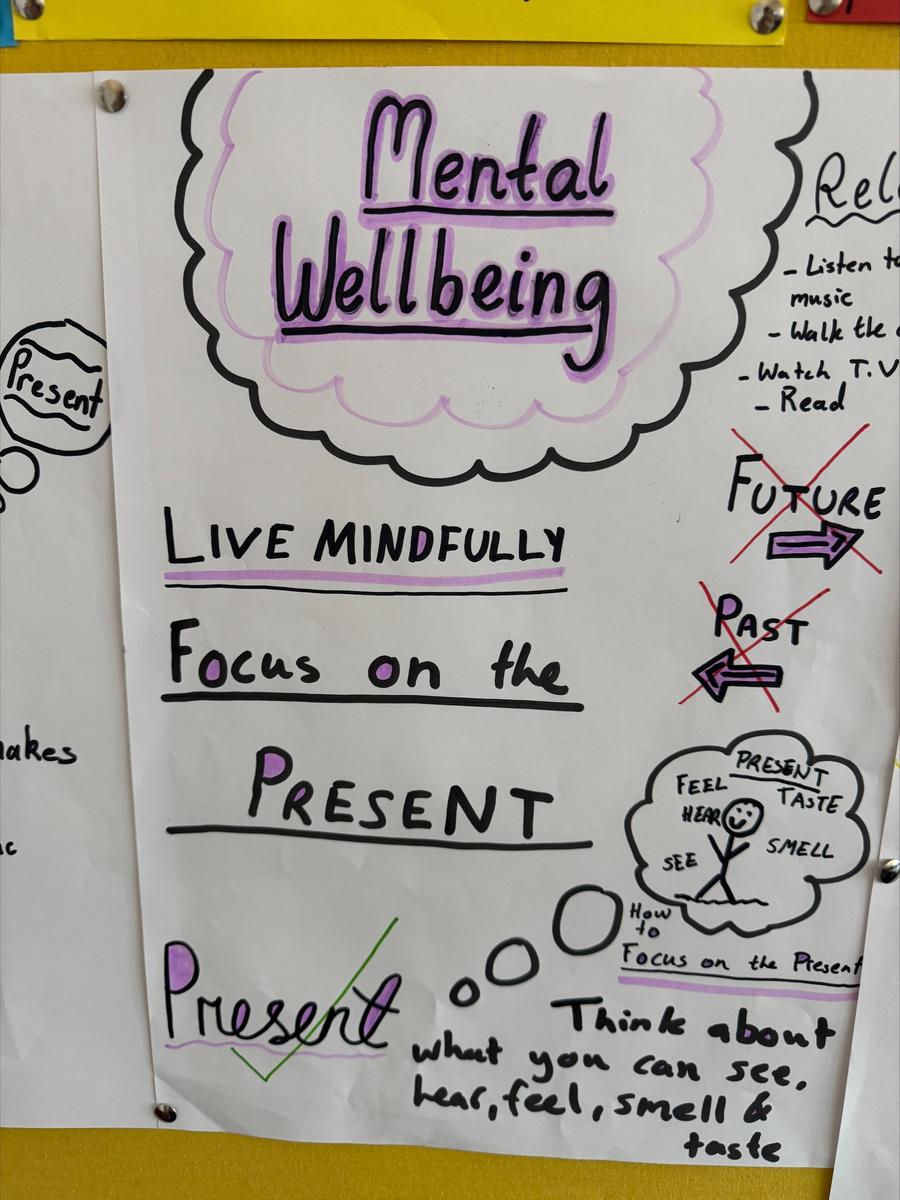 Mental
Wellbeing
- Listen to
music
- Walk the
- Watch T.V
- Read
Present
LIVE MINDFULLY
Focus on the
PRESENT
FUTURE
PAST
PRESENT
FEEL
TASTE
HEAR
SMELL
SEE
How
to
Focus on the Present
Present
Think about
what you can see,
hear, feel, smell &
taste